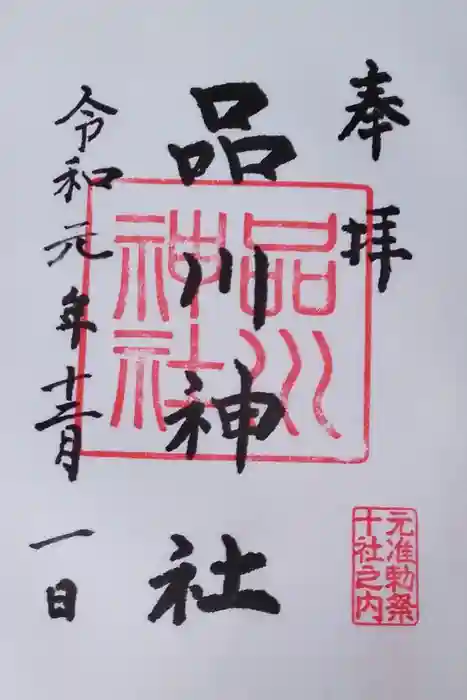 奉拝
品川神社
品川
神社
令和元年十二月一日
元准勅祭
十社之内